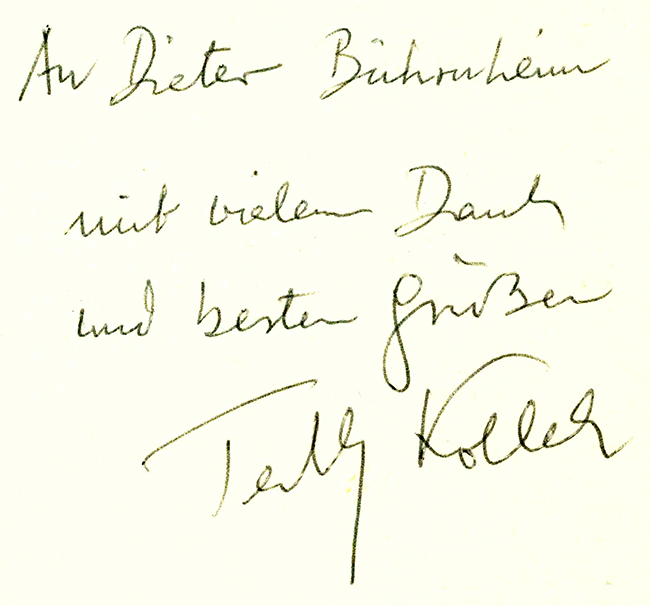 An Dieter Bührnheim
mit vielem Dank
und besten Grüßen
Teddy Kollek